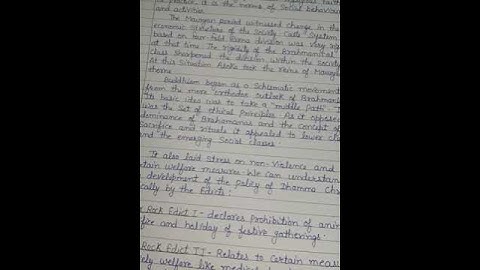 practice, it is the norms of Social behaviour
and activities.
The Mauryan period witnessed change in the
economic structure of the Society. Caste System
based on four fold Varna division was very
at that time. The rigidity of the Brahmanical
class sharpened the division within the society
At this situation Asoka took the reins of Maurya
throne
Buddhism began as a Schismatic movement
from the more orthodox outlook of Brahmani
Its basic idea was to take a 'middle Path'.
was the set of ethical principles. As it opposed
dominance of Brahamanas and the concept of
Sacrifice and rituals it appealed to lower cla
and the emerging Social classes.
It also laid stress on non-violence and
tain welfare measures. We can understan
development of the policy of Dhamma
cally by the Edicts:
Rock Edict I - declares prohibition of anim
fice and holiday of festive gatherings.
Rock Edict II - Relates to certain measu
welfare like medical